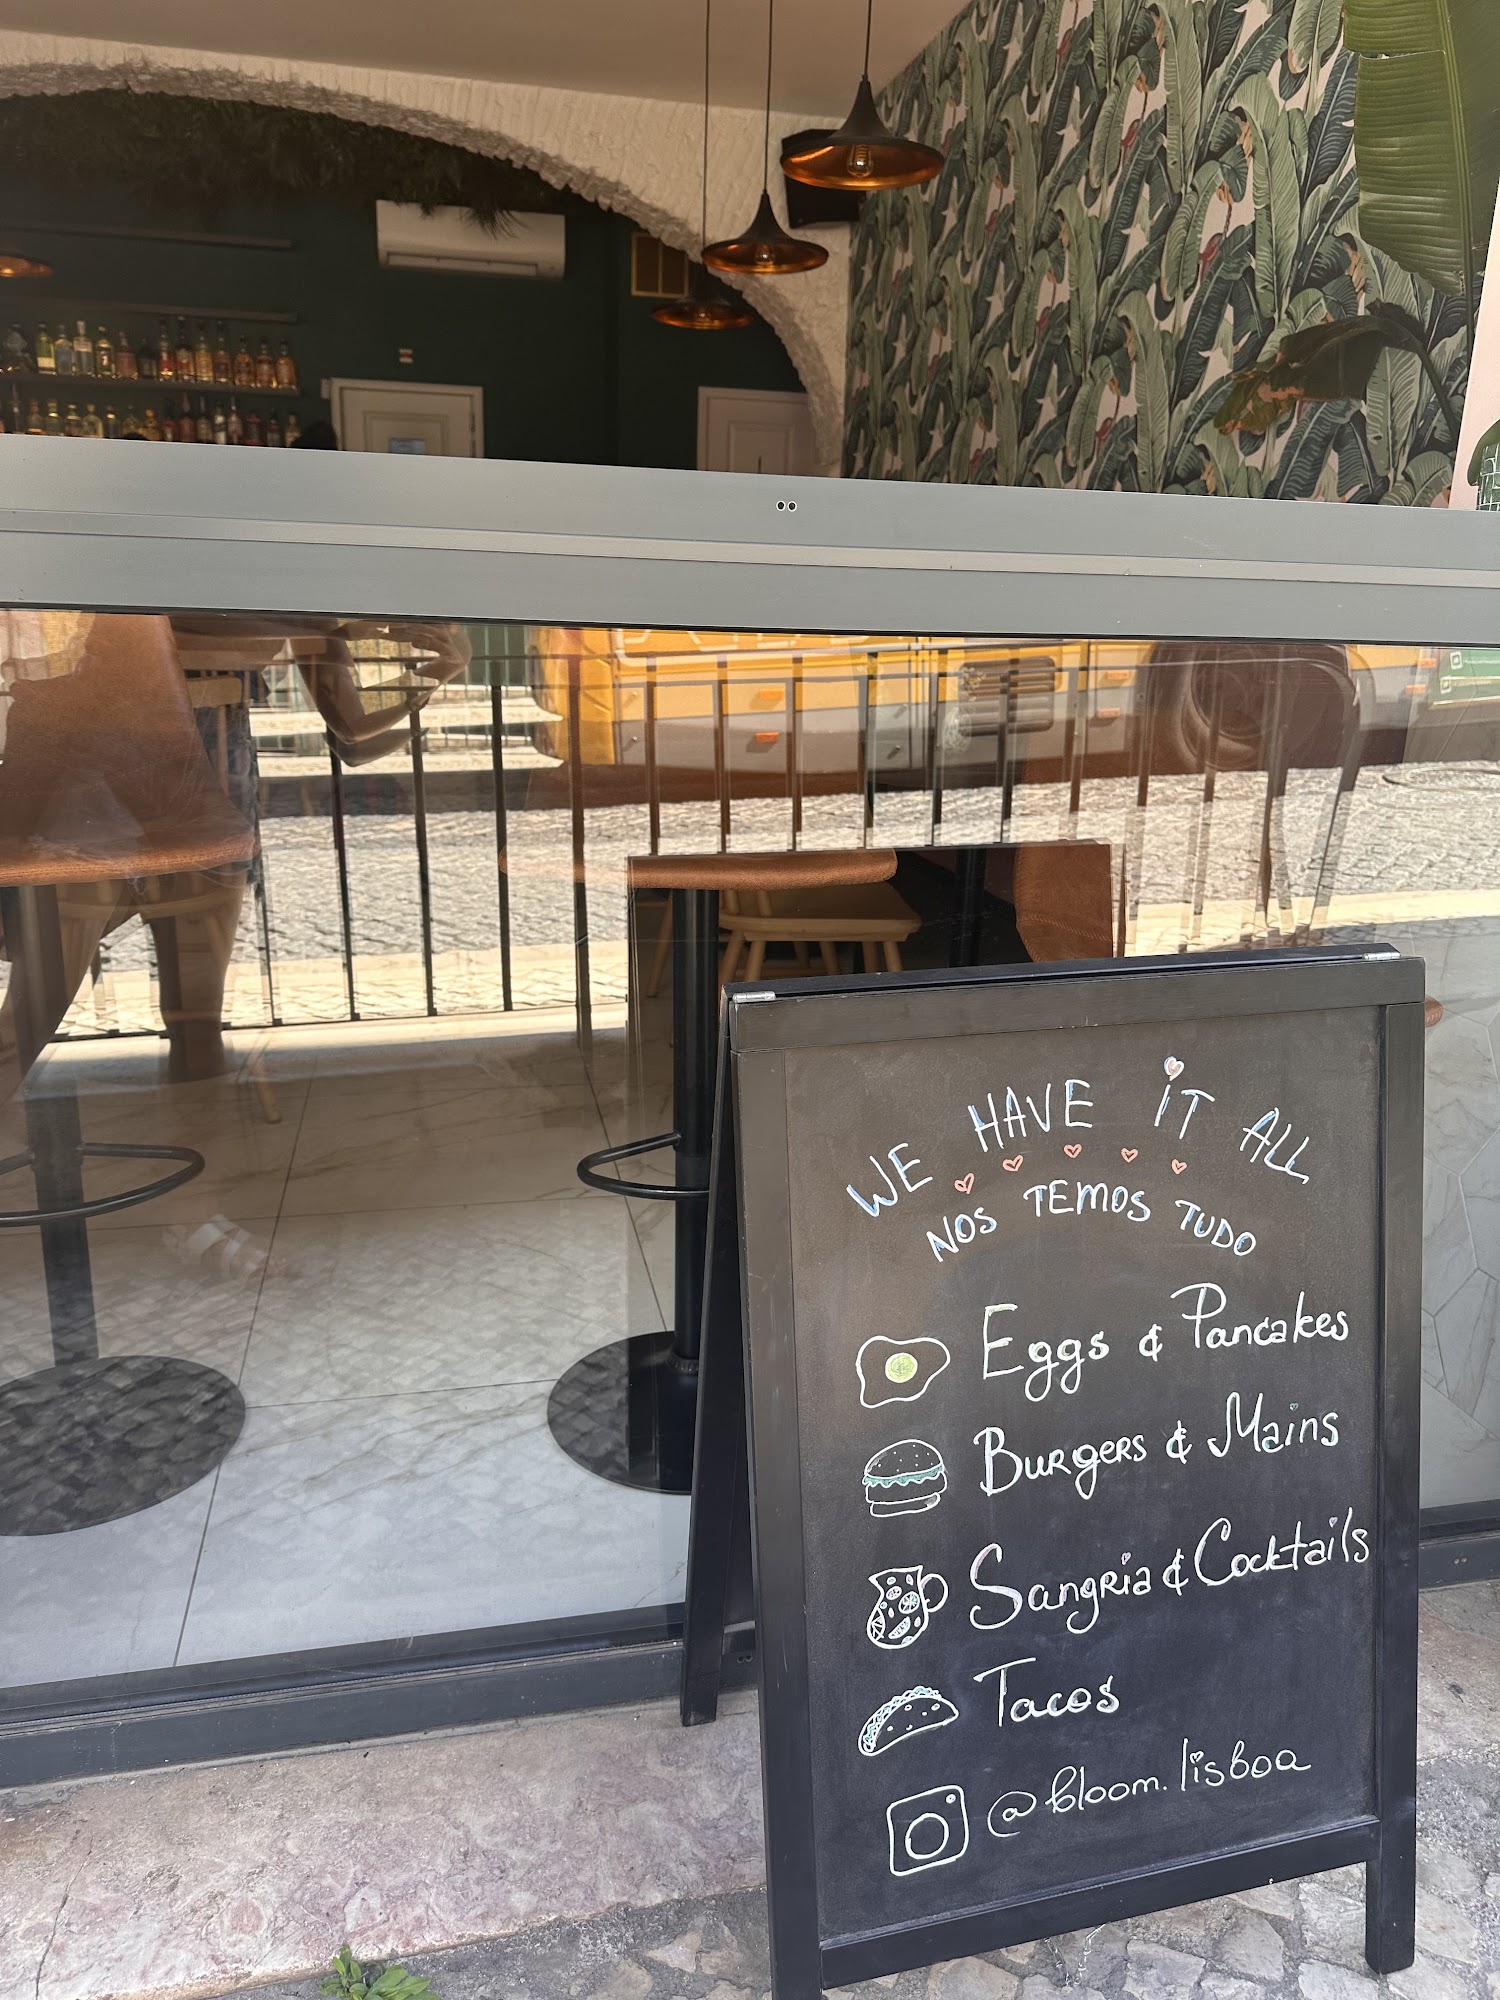 WE HAVE iT ALL
NOS TEMOS TUDO
Eggs & Pancakes
Burgers & Mains
Sangria & Cocktails
Tacos
@bloom.lisboa